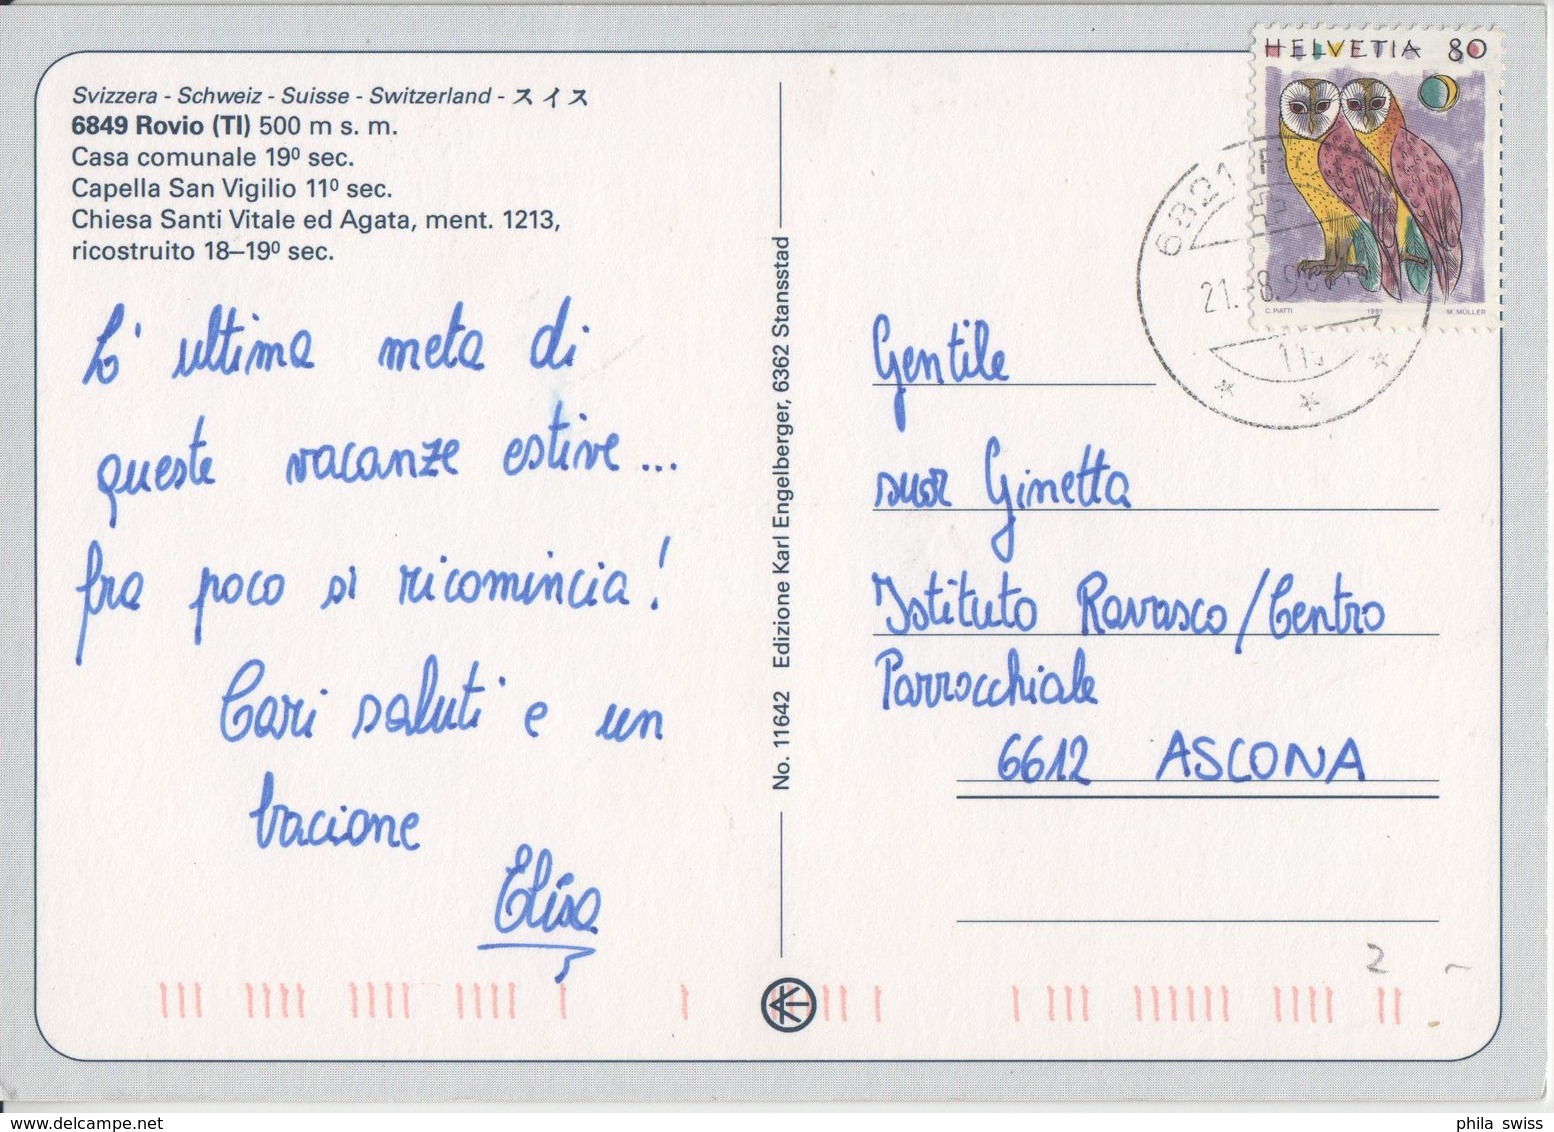 Svizzera - Schweiz - Suisse - Switzerland - スイス
6849 Rovio (TI) 500 m s. m.
Casa comunale 19º sec.
Capella San Vigilio 11º sec.
Chiesa Santi Vitale ed Agata, ment. 1213,
ricostruito 18–19º sec.
L'ultima meta di
queste vacanze estive...
fra poco si ricomincia!
Cari saluti e un
bacione
Elisa
No. 11642 Edizione Karl Engelberger, 6362 Stansstad
HELVETIA 80
C. PIATTI 1991 M. MÜLLER
6821
21.-8.9
Gentile
suor Ginetta
Istituto Ravasco/Centro
Parrocchiale
6612 ASCONA
2
phila swiss